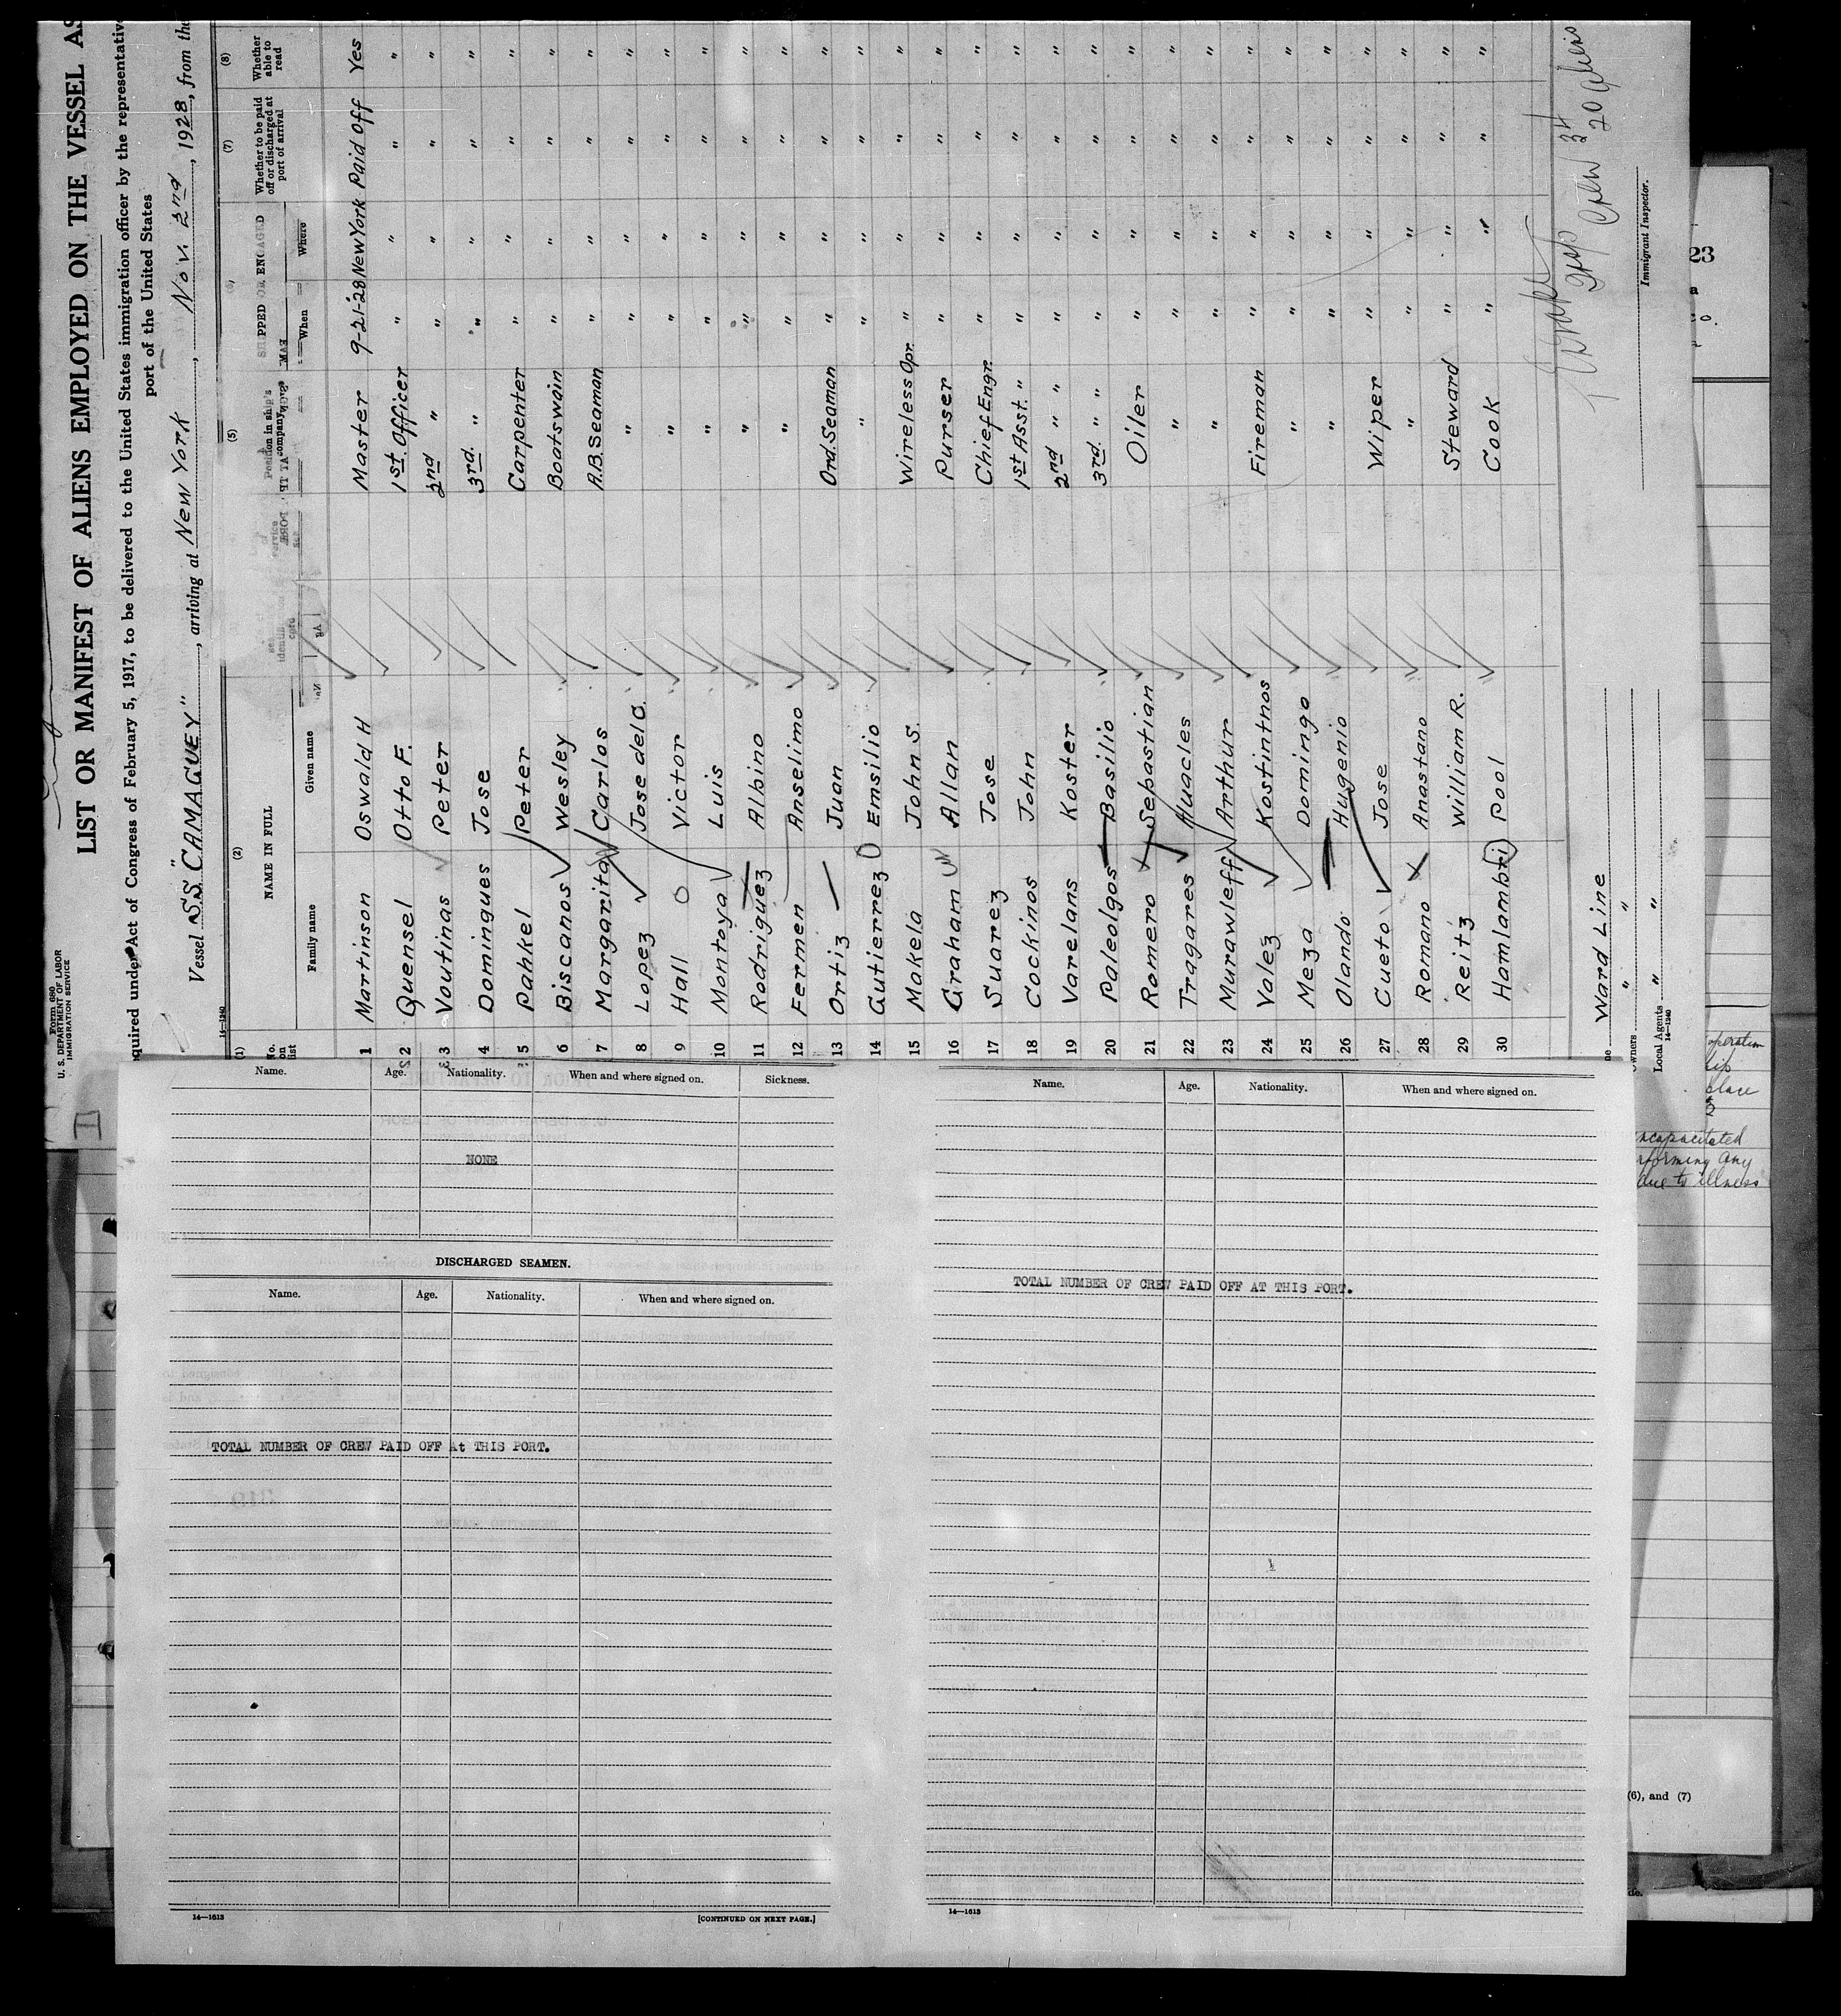 Form 680
U. S. DEPARTMENT OF LABOR
IMMIGRATION SERVICE
LIST OR MANIFEST OF ALIENS EMPLOYED ON THE VESSEL AS
quired under Act of Congress of February 5, 1917, to be delivered to the United States immigration officer by the representative
port of the United States
Vessel S.S. "CAMAGUEY", arriving at New York, Nov. 2nd, 1928, from the
14—1240
(1) (2) (5) (7) (8)
No. on list NAME IN FULL Position in ship's company SHIPPED OR ENGAGED Whether to be paid off or discharged at port of arrival Whether able to read
Family name Given name When Where
1 Martinson Oswald H Master 9-21-28 New York Paid Off Yes
2 Quensel Otto F. 1st Officer " " " "
3 Voutinas Peter 2nd " " " " "
4 Domingues Jose 3rd. " " " " "
5 Pahkel Peter Carpenter " " " "
6 Biscanos Wesley Boatswain " " " "
7 Margarita Carlos A.B. Seaman " " " "
8 Lopez Jose del C. " " " " "
9 Hall Victor " " " " "
10 Montoya Luis " " " " "
11 Rodriguez Albino " " " " "
12 Fermen Anselimo " " " " "
13 Ortiz Juan Ord. Seaman " " " "
14 Gutierrez Emsilio " " " " "
15 Makela John S. Wireless Opr. " " " "
16 Graham Allan Purser " " " "
17 Suarez Jose Chief Engr. " " " "
18 Cockinos John 1st Asst. " " " " "
19 Varelans Koster 2nd " " " " " "
20 Paleolgos Basilio 3rd. " " " " " "
21 Romero Sebastian Oiler " " " "
22 Tragares Huacles " " " " "
23 Murawleff Arthur " " " " "
24 Valez Kostintnos Fireman " " " "
25 Meza Domingo " " " " "
26 Olando Hugenio " " " " "
27 Cueto Jose Wiper " " " "
28 Romano Anastano " " " " "
29 Reitz William R. Steward " " " "
30 Hamlambri Pool Cook " " " "
Crew 34
20 Aliens
Ward Line
wners " "
Local Agents " "
14—1240
Immigrant Inspector.
Name. Age. Nationality. When and where signed on. Sickness.
NONE
DISCHARGED SEAMEN.
Name. Age. Nationality. When and where signed on.
TOTAL NUMBER OF CREW PAID OFF At THIS PORT.
14—1613
[CONTINUED ON NEXT PAGE.]
Name. Age. Nationality. When and where signed on.
TOTAL NUMBER OF CREW PAID OFF AT THIS PORT.
14—1613
23
operation
place
incapacitated
rforming any
due to illness
(6), and (7)